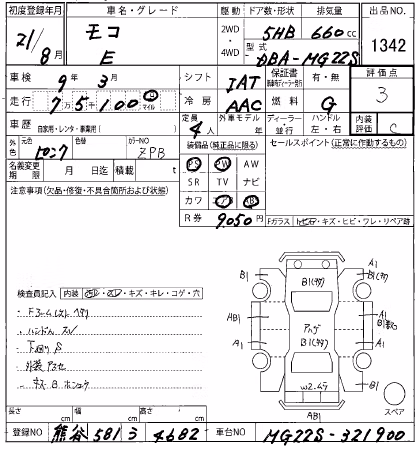 初度登録年月 車名・グレード 駆動 ドア数・形状 排気量 出品NO.
21/8月 モコ E 2WD・4WD 5HB 660cc 1342
型式 DBA-MG22S
車検 9年3月 シフト IAT 保証書 有・無 評価点
走行 7万5千100 km マイル 冷房 AAC 燃料 G 3
車歴 自家用・レンタ・事業用( ) 定員 4人 外車モデル 年 ディーラー・並行 ハンドル 左・右 内装評価 C
外色 元色 ピンク 色替 カラーNO ZPB
装備品(純正品に限る) セールスポイント(正常に作動するもの)
名義変更期限 月 日迄 積載 t
PS PW AW
SR TV ナビ
カワ エアB AB
注意事項(欠品・修復・不具合箇所および状態)
R券 9050円
Fガラス トビ石・キズ・ヒビ・ワレ・リペア跡
検査員記入 内装 ヨゴレ・スレ・キズ・キレ・コゲ・穴
ハンドル スレ
下回り S
外装 アセ
キズ B
B1 B1(タワ) A1
B1(タワ)
AB1 アハゲ B1
A1 B1(タワ) A1
W2 B1
AB1 スペア
長さ cm 幅 cm 高さ cm
登録NO 熊谷 581 ろ 4682 車台NO MG22S-321900